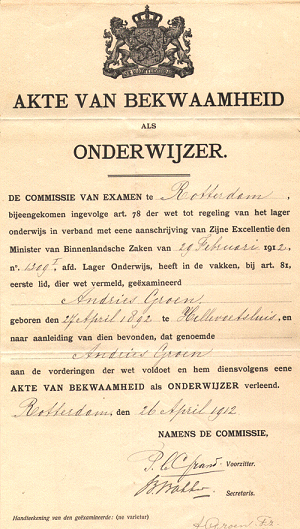 AKTE VAN BEKWAAMHEID
ALS
ONDERWIJZER.
DE COMMISSIE VAN EXAMEN te Rotterdam,
bijeengekomen ingevolge art. 78 der wet tot regeling van het lager
onderwijs in verband met eene aanschrijving van Zijne Excellentie den
Minister van Binnenlandsche Zaken van 29 Februari 1912,
n°. 1309¹ afd. Lager Onderwijs, heeft in de vakken, bij art. 81,
eerste lid, die wet vermeld, geëxamineerd
Andries Groen,
geboren den 27 April 1892 te Hellevoetsluis, en
naar aanleiding van dien bevonden, dat genoemde
Andries Groen
aan de vorderingen der wet voldoet en hem diensvolgens eene
AKTE VAN BEKWAAMHEID als ONDERWIJZER verleend.
Rotterdam, den 26 April 1912
NAMENS DE COMMISSIE,
Voorzitter.
Secretaris.
Handteekening van den geëxamineerde: (ne varietur)
A Groen Fz.